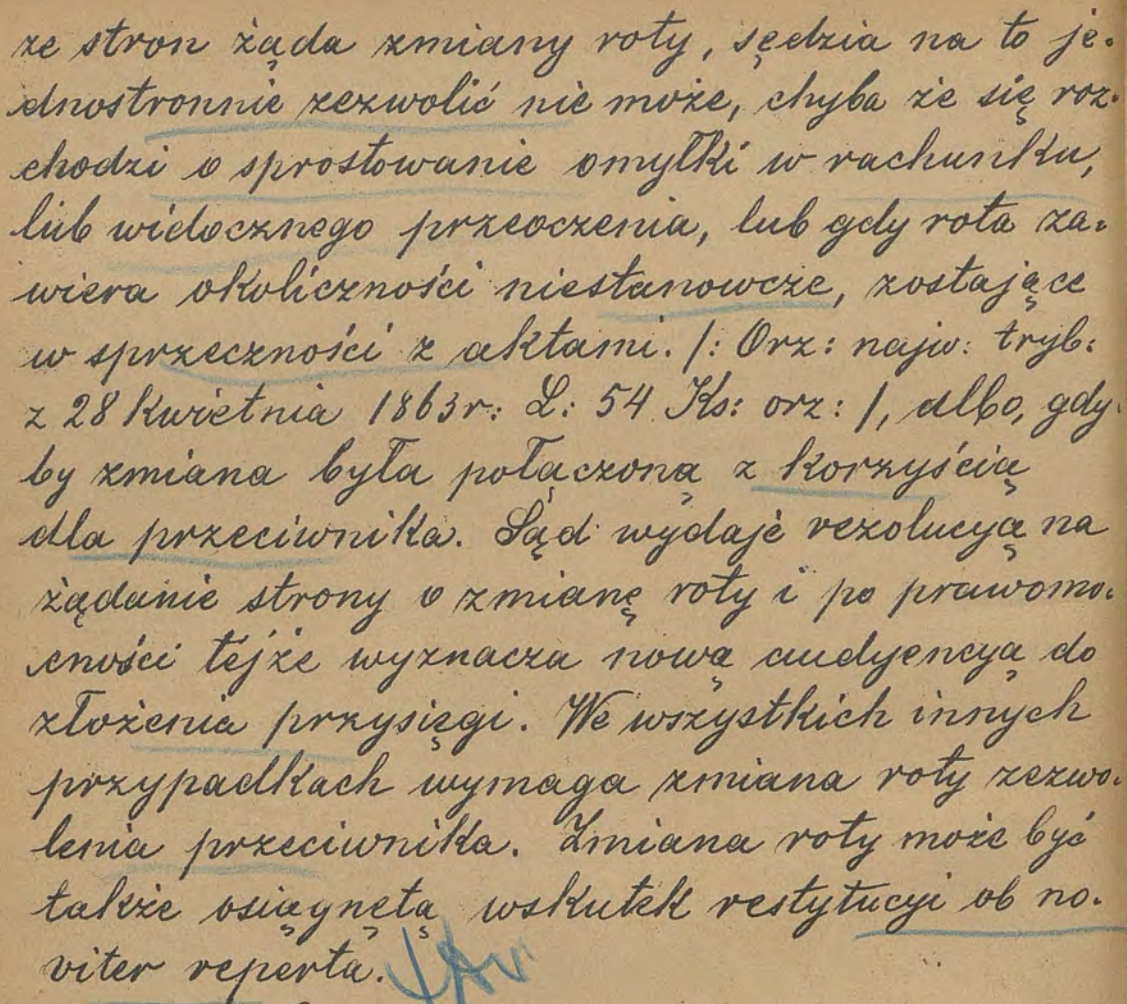 ze stron żąda zmiany roty, sędzia na to je-
dnostronnie zezwolić nie może, chyba że się roz-
chodzi o sprostowanie omyłki w rachunku,
lub widocznego przeoczenia, lub gdy rota za-
wiera okoliczności niestanowcze, zostające
w sprzeczności z aktami. /: Orz: najw: tryb:
z 28 Kwietnia 1863 r: L: 54 Ks: orz: /, albo, gdy-
by zmiana była połączoną z korzyścią
dla przeciwnika. Sąd wydaje rezolucyą na
żądanie strony o zmianę roty i po prawomo-
cności tejże wyznacza nową audyencyą do
złożenia przysięgi. We wszystkich innych
przypadkach wymaga zmiana roty zezwo-
lenia przeciwnika. Zmiana roty może być
także osiągnętą wskutek restytucyi ob no-
viter reperta.